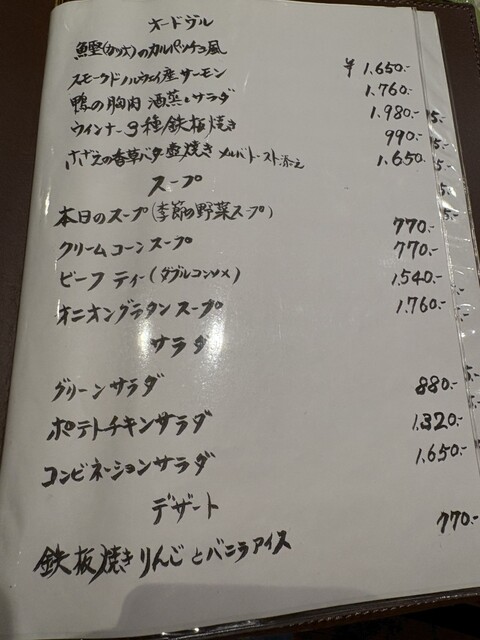 オードヴル
鮪鰹(かつお)のカルパッチョ風 ¥1.650.-
スモークドノルウェイ産サーモン 1.760.-
鴨の胸肉 酒蒸しサラダ 1.980.-
ウインナー3種/鉄板焼き 990.-
さざえの香草バター壺焼き メルバトースト添え 1.650
スープ
本日のスープ(季節の野菜スープ) 770.-
クリームコーンスープ 770.-
ビーフティー(ダブルコンソメ) 1.540.-
オニオングラタンスープ 1.760.-
サラダ
グリーンサラダ 880.-
ポテトチキンサラダ 1.320.-
コンビネーションサラダ 1.650.-
デザート
鉄板焼きりんごとバニラアイス 770.-